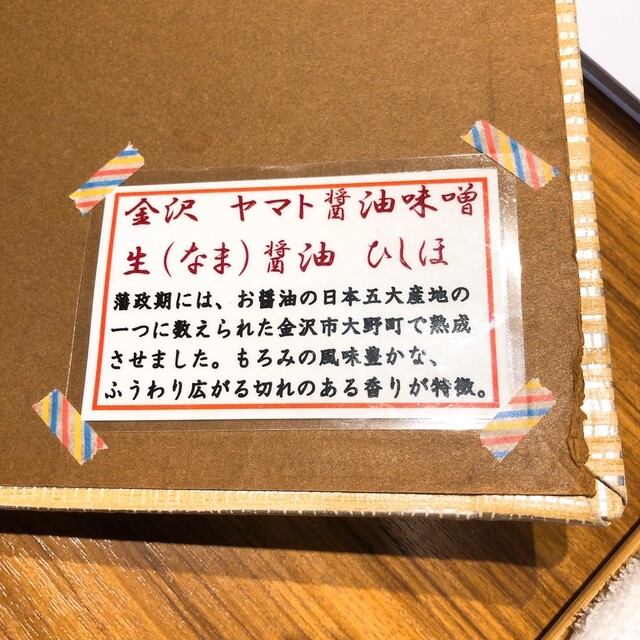 金沢 ヤマト醬油味噌
生(なま)醬油 ひしほ
藩政期には、お醬油の日本五大産地の
一つに数えられた金沢市大野町で熟成
させました。もろみの風味豊かな、
ふうわり広がる切れのある香りが特徴。